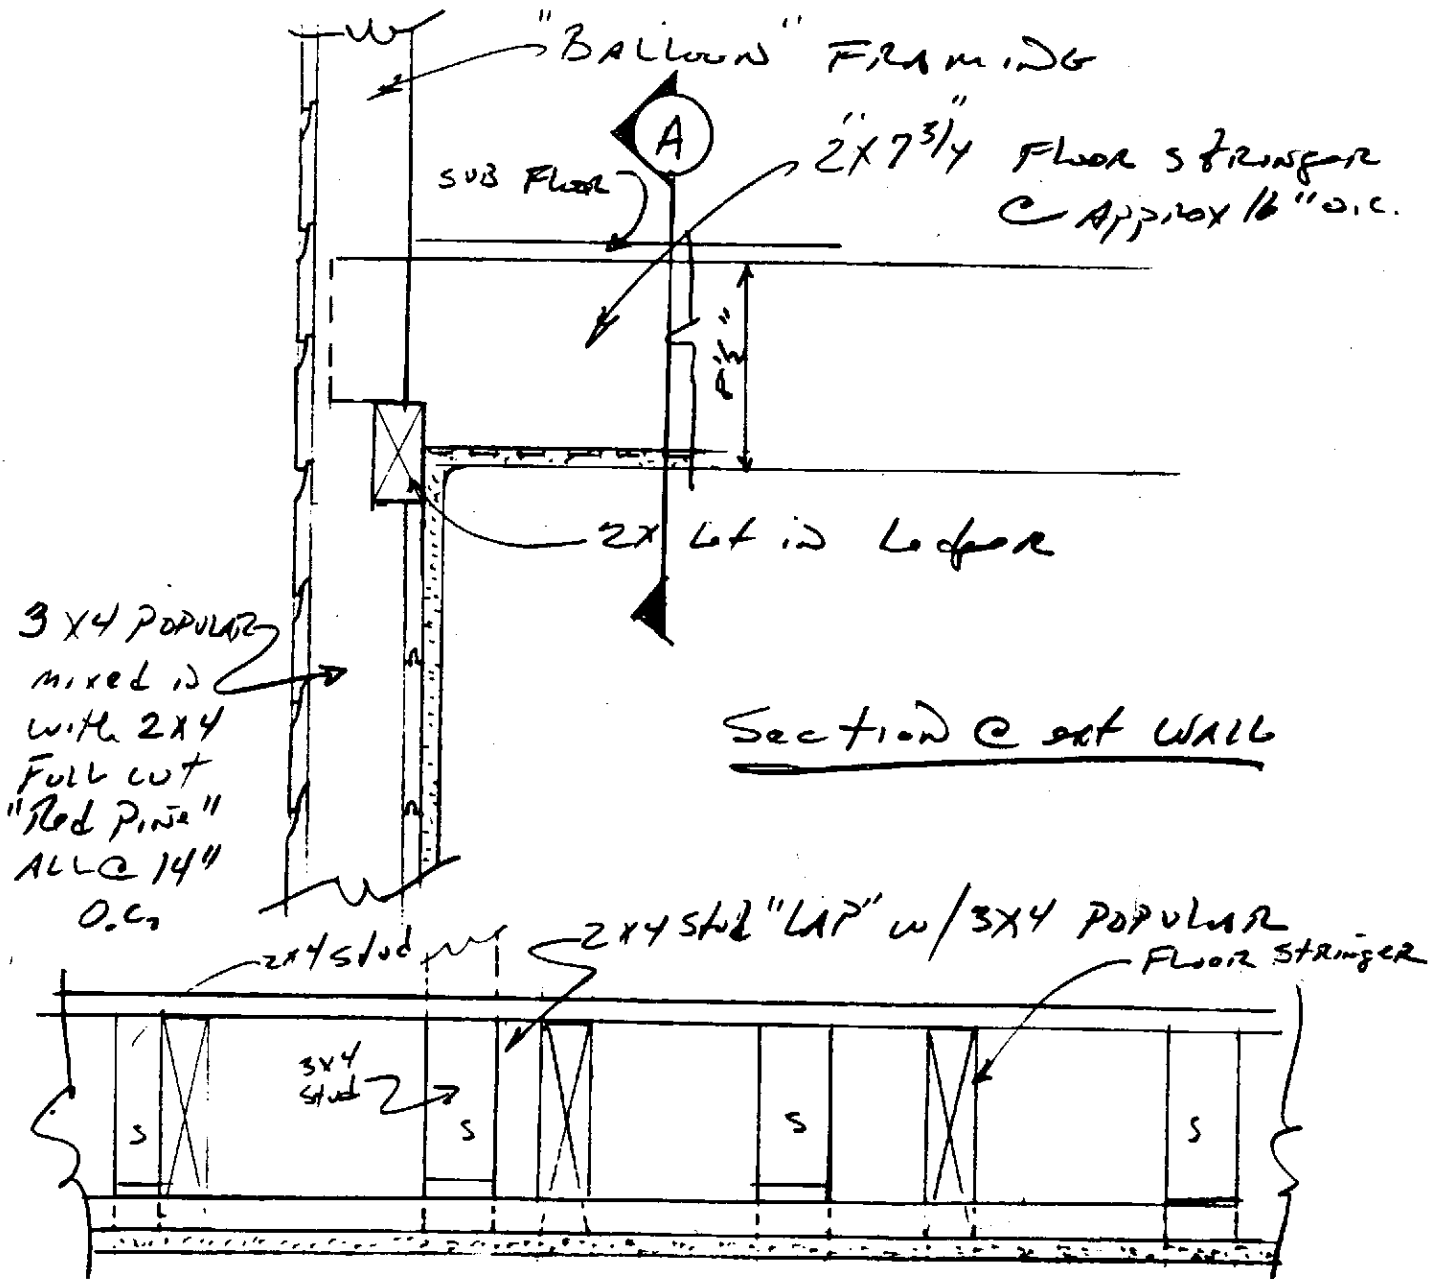 "BALLOON" FRAMING
A
SUB FLOOR
2"X7 3/4" FLOOR STRINGER
@ APPROX 16" O.C.
8½"
2X Let in Ledger
3 X4 POPULAR
mixed in
with 2X4
FULL CUT
"Red Pine"
ALL @ 14"
O.C.
Section @ ext WALL
2x4 Stud
2X4 Stud "LAP" w/3X4 POPULAR
FLOOR STRINGER
3x4
Stud
S
S
S
S